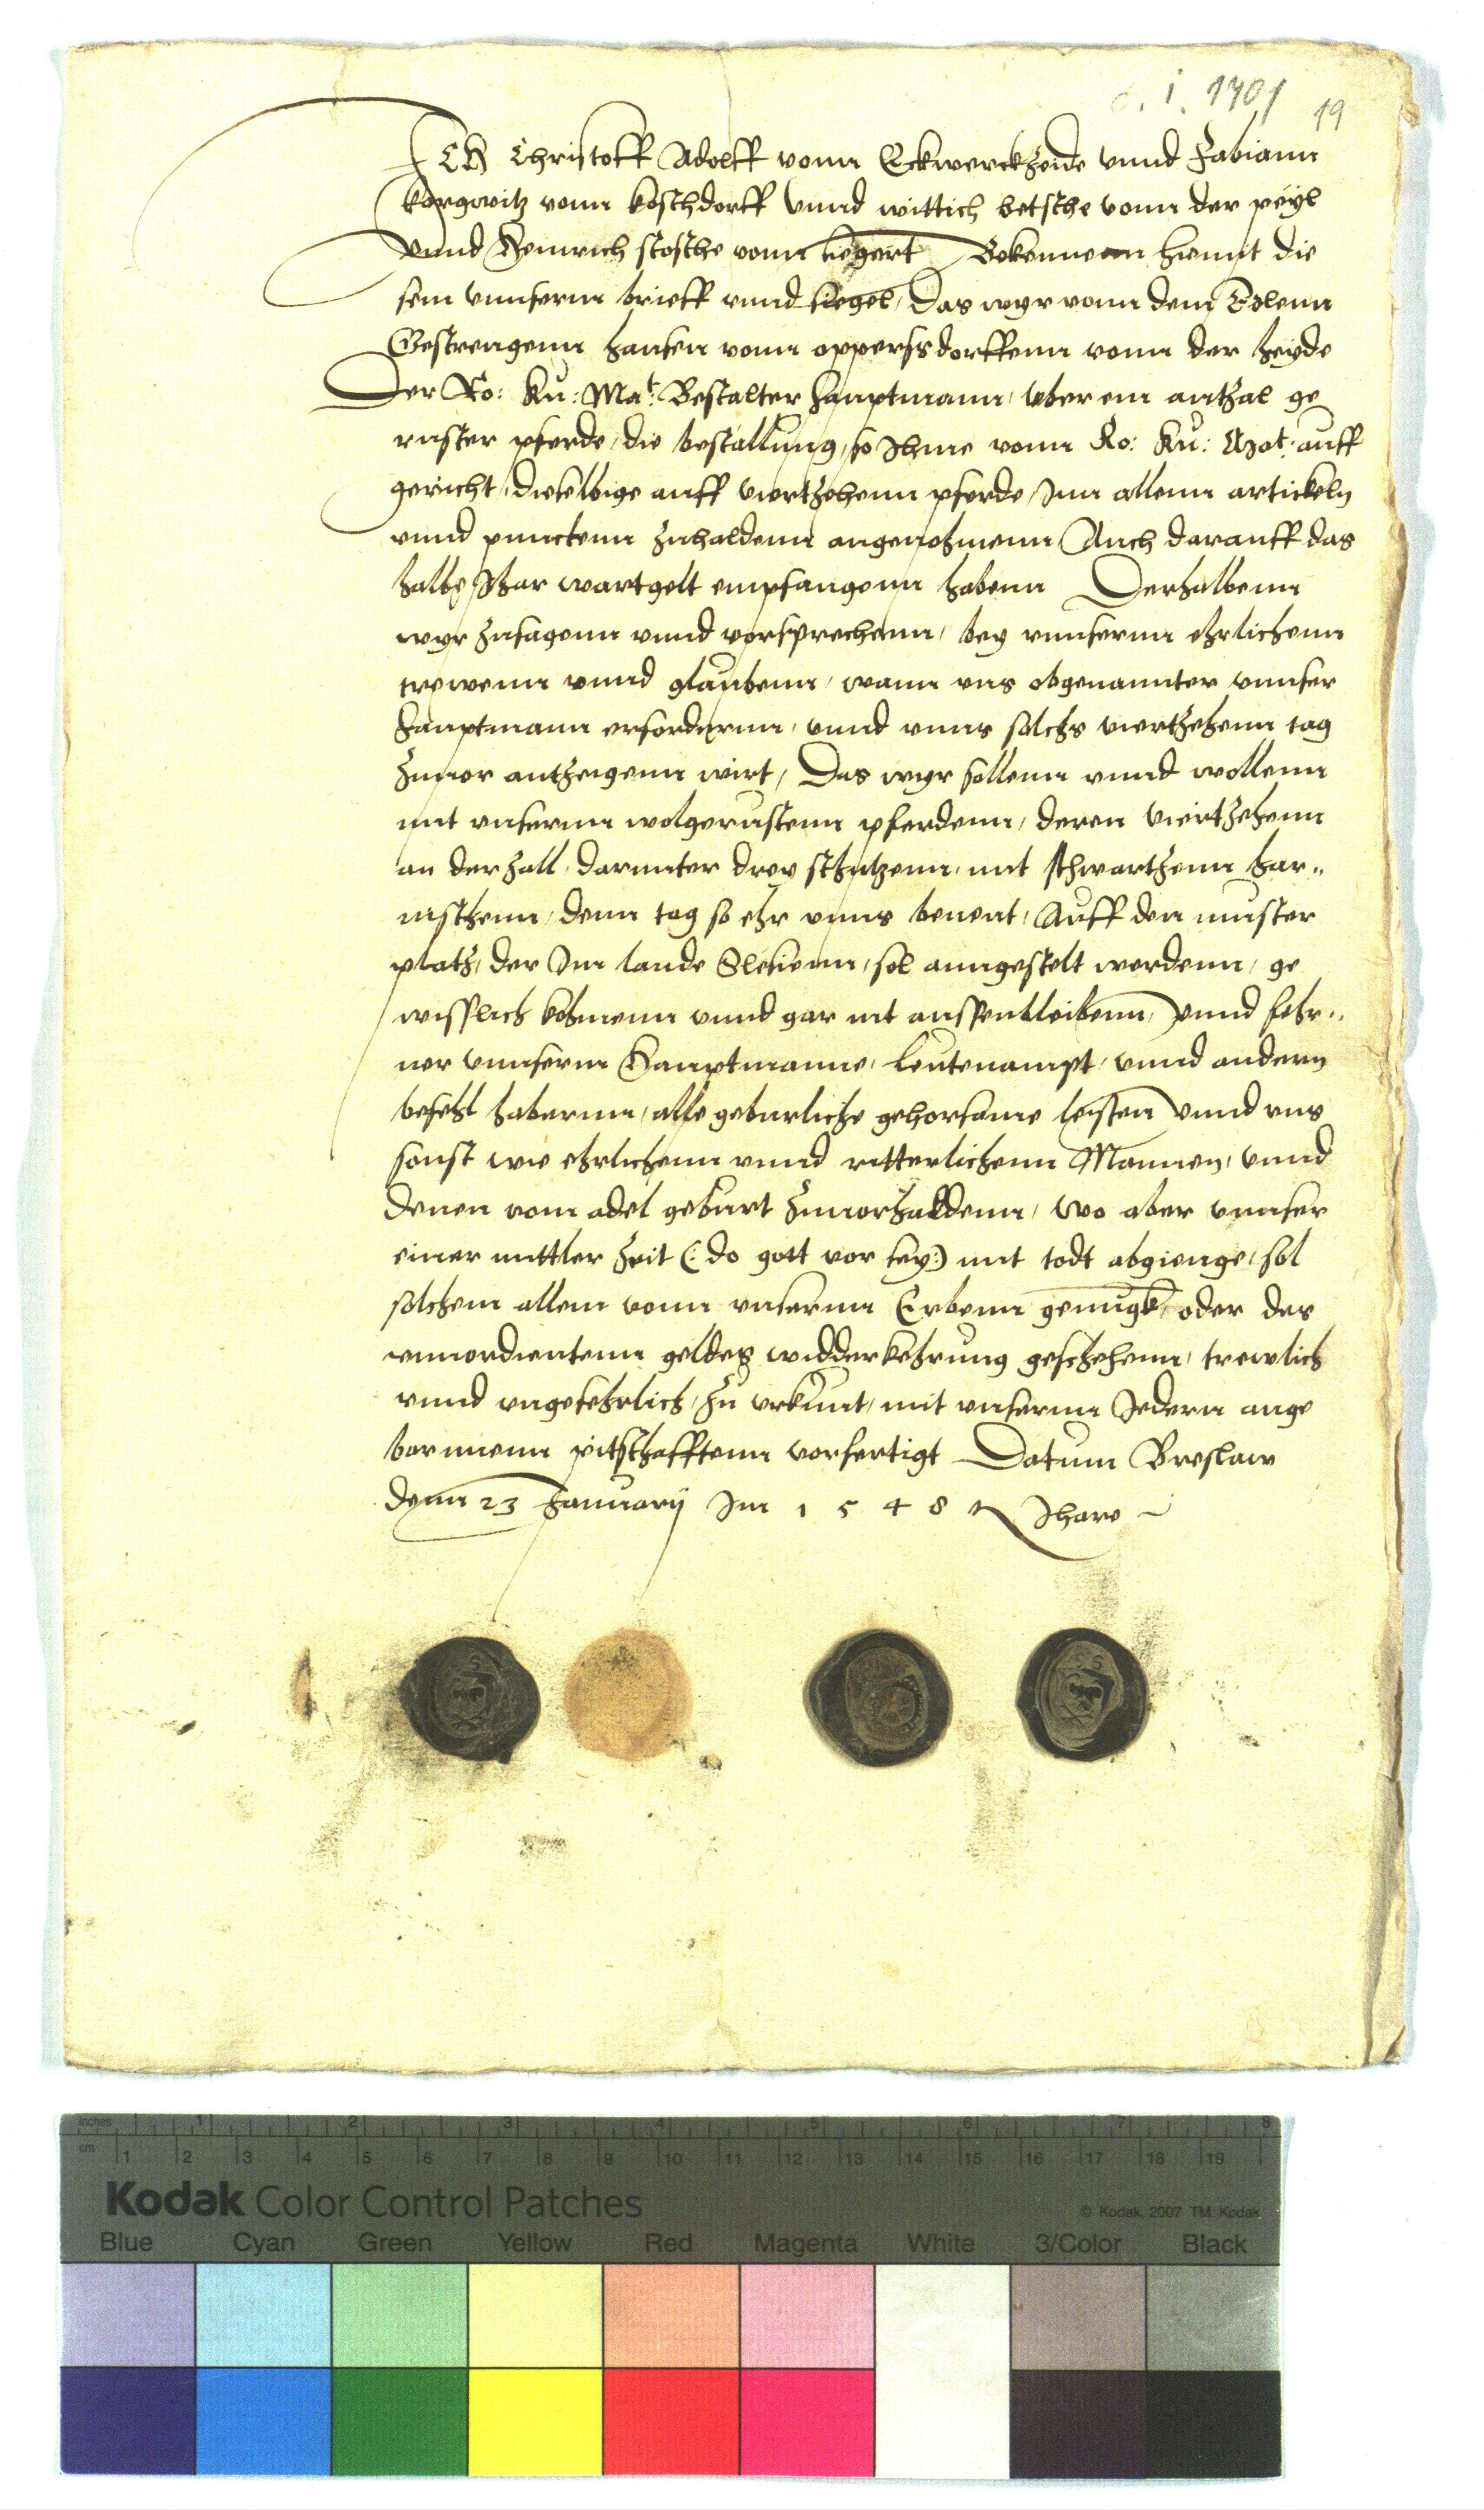 1701
19
ICH Christoff Adolff vonn Eckwerckheide vnnd Fabiann
vonn koschdorff vnnd wittich betsche vonn der peyl
vnnd Heinrich stosche vonn Bekennenn hiemit die
sem vnnserm brieff vnnd siegel, Das wyr vonn dem Edlenn
Gestrengenn hansen vonn oppersdorffenn vonn der heyde
Der Ro: Ku: Mat: Bestalter hauptmann, vber ein antzal ge
ruster pferde, die bestallung, so Ihme vonn Ro: Ku: Mat: auff
gericht, dieselbige auff viertzehenn pferde, Inn allenn artickeln
vnnd punctenn zuhaldenn angenohmenn Auch darauff das
halbe Ihar wartgelt empfangenn habenn Derhalbenn
wyr zusagenn vnnd vorsprechenn, bey vnnsernn ehrlichenn
trewenn vnnd glaubenn, wann vns obgenannter vnnser
hauptmann erfordernn, vnnd vnns solchs viertzehenn tag
zuuor antzeigenn wirt, Das wyr sollenn vnnd wollenn
mit vnsernn wolgerustenn pferdenn, deren viertzehenn
an der zall, darunter drey schutzenn, mit schwartzenn har„
nischenn, denn tag so ehr vnns benent, Auff den muster
platz, der Inn lande Slesienn, sol anngestelt werdenn, ge
wisslich kohmenn vnnd gar nit aussenbleibenn, vnnd fehr„
ner vnnserm Hauptmanne, leutenampt, vnnd andern
befehl habernn, alle geburliche gehorsame leisten vnnd vns
sonst wie ehrlichenn vnnd ritterlichenn Mannen, vnnd
denen vonn adel geburt zuuorhaldenn, Wo aber vnnser
einer mittler zeit (: do gott vor sey:) mit todt abgienge, sol
solchem allem vonn vnsernn Erbenn genugk, oder des
vnuordientenn geldes widderkehrung geschehenn, trewlich
vnnd vngefehrlich, Zu vrkunt, mit vnsernn Jedern ange
bornnenn pitschafftenn vorfertigt Datum Breslaw
denn 23 January Im 1 5 4 8 Ihare
inches 1 2 3 4 5 6 7 8
cm 1 2 3 4 5 6 7 8 9 10 11 12 13 14 15 16 17 18 19
Kodak Color Control Patches
© Kodak, 2007 TM: Kodak
Blue Cyan Green Yellow Red Magenta White 3/Color Black